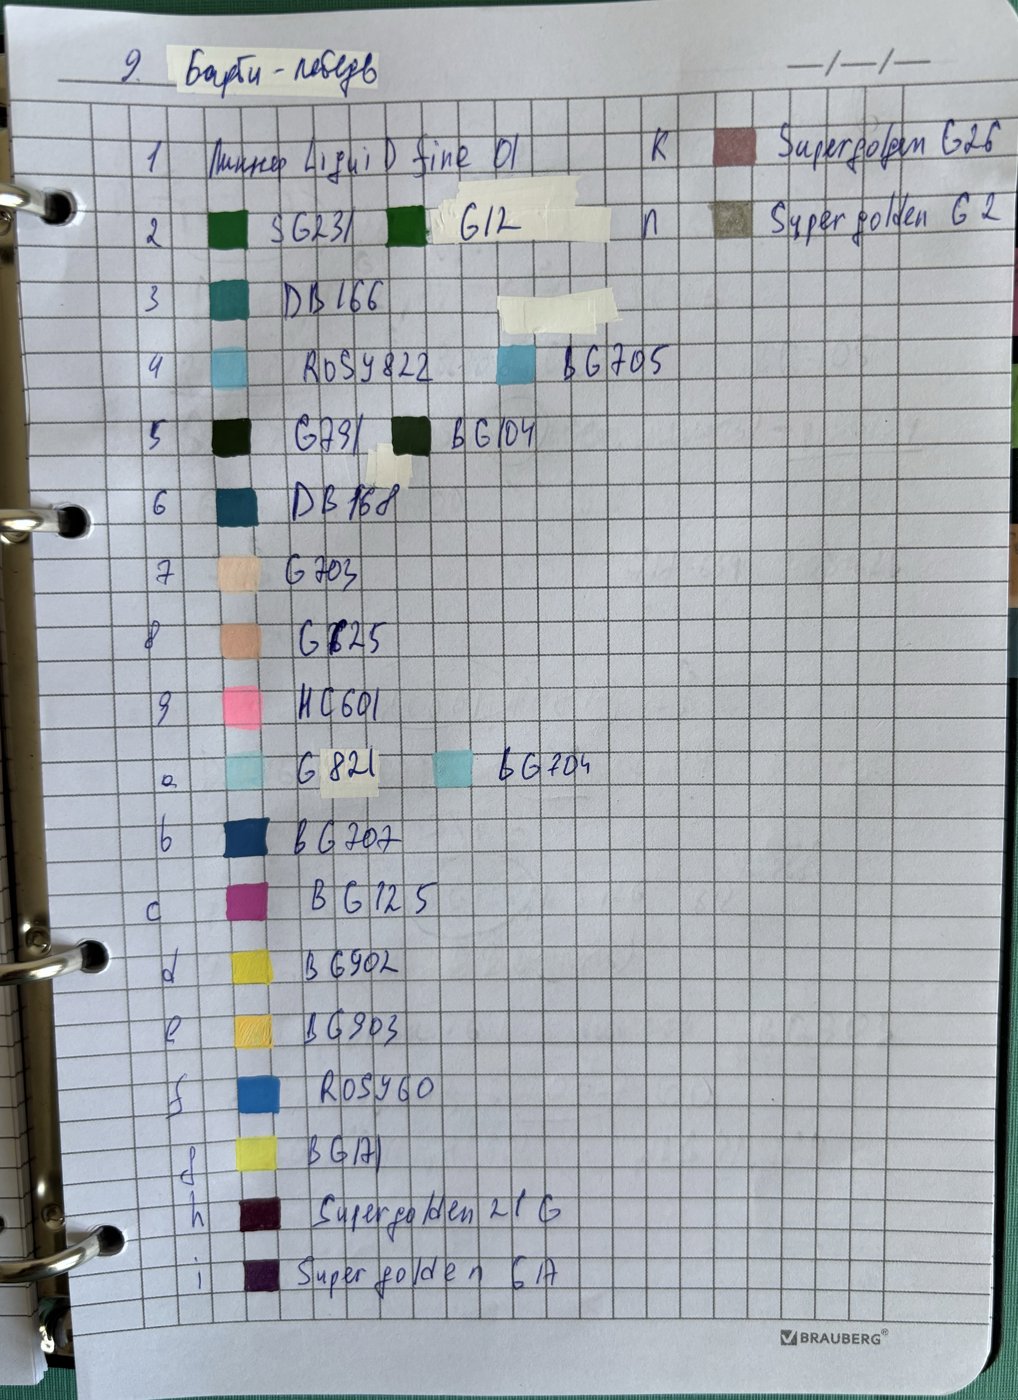 9. Барби-лебедь
—/—/—
1 Линнер LiquiD fine 01
2 SG231 G12
3 DB166
4 ROSY822 BG705
5 G791 BG104
6 DB168
7 G703
8 G825
9 HC601
a G821 BG704
b BG707
c BG125
d BG902
e BG903
f ROSY60
g BG171
h Supergolden 21 G
i Supergolden G17
K Supergolden G26
n Supergolden G2
BRAUBERG®